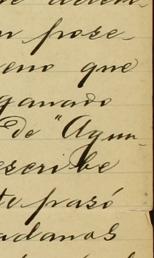 n pose-
eno que
ganado
de "Ayun-
escribe
te pasó
adanos